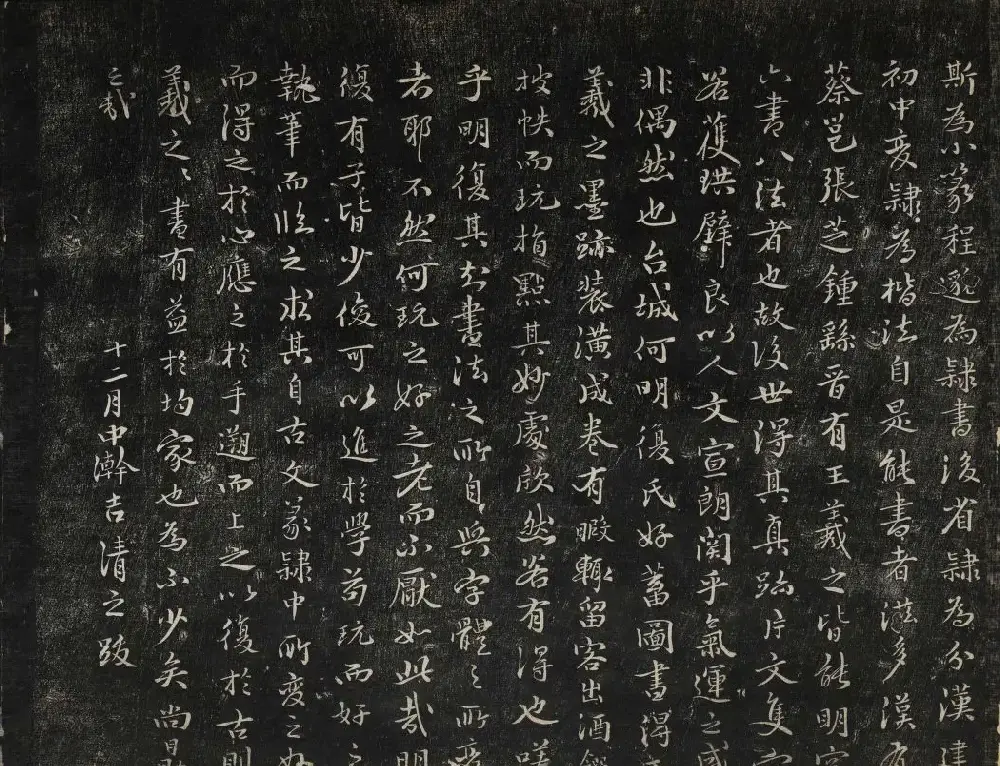 斯為小篆程邈為隸書後省隸為分漢建
初中变隸為楷法自是能書者滋多漢有
蔡邕張芝鍾繇晉有王羲之皆能明
六書八法者也故後世得其真跡片文隻
若獲珙璧良以人文宣朗関乎氣運之盛
非偶然也台城何明復氏好蓄圖書得
羲之墨跡裝潢成卷有暇輙留客出酒
披帙而玩指點其妙處欣然若有得也嗟
乎明復其知書法之所自與字體之所变
者耶不然何玩之好之老而不厭如此哉明
復有子皆少俊可以進於學苟玩而好之
執筆而臨之求其自古文篆隸中所变之妙
而得之於心應之於手遡而上之以復於古則
羲之之書有益於均家也為不少矣尚
之哉
十二月中澣吉清之跋